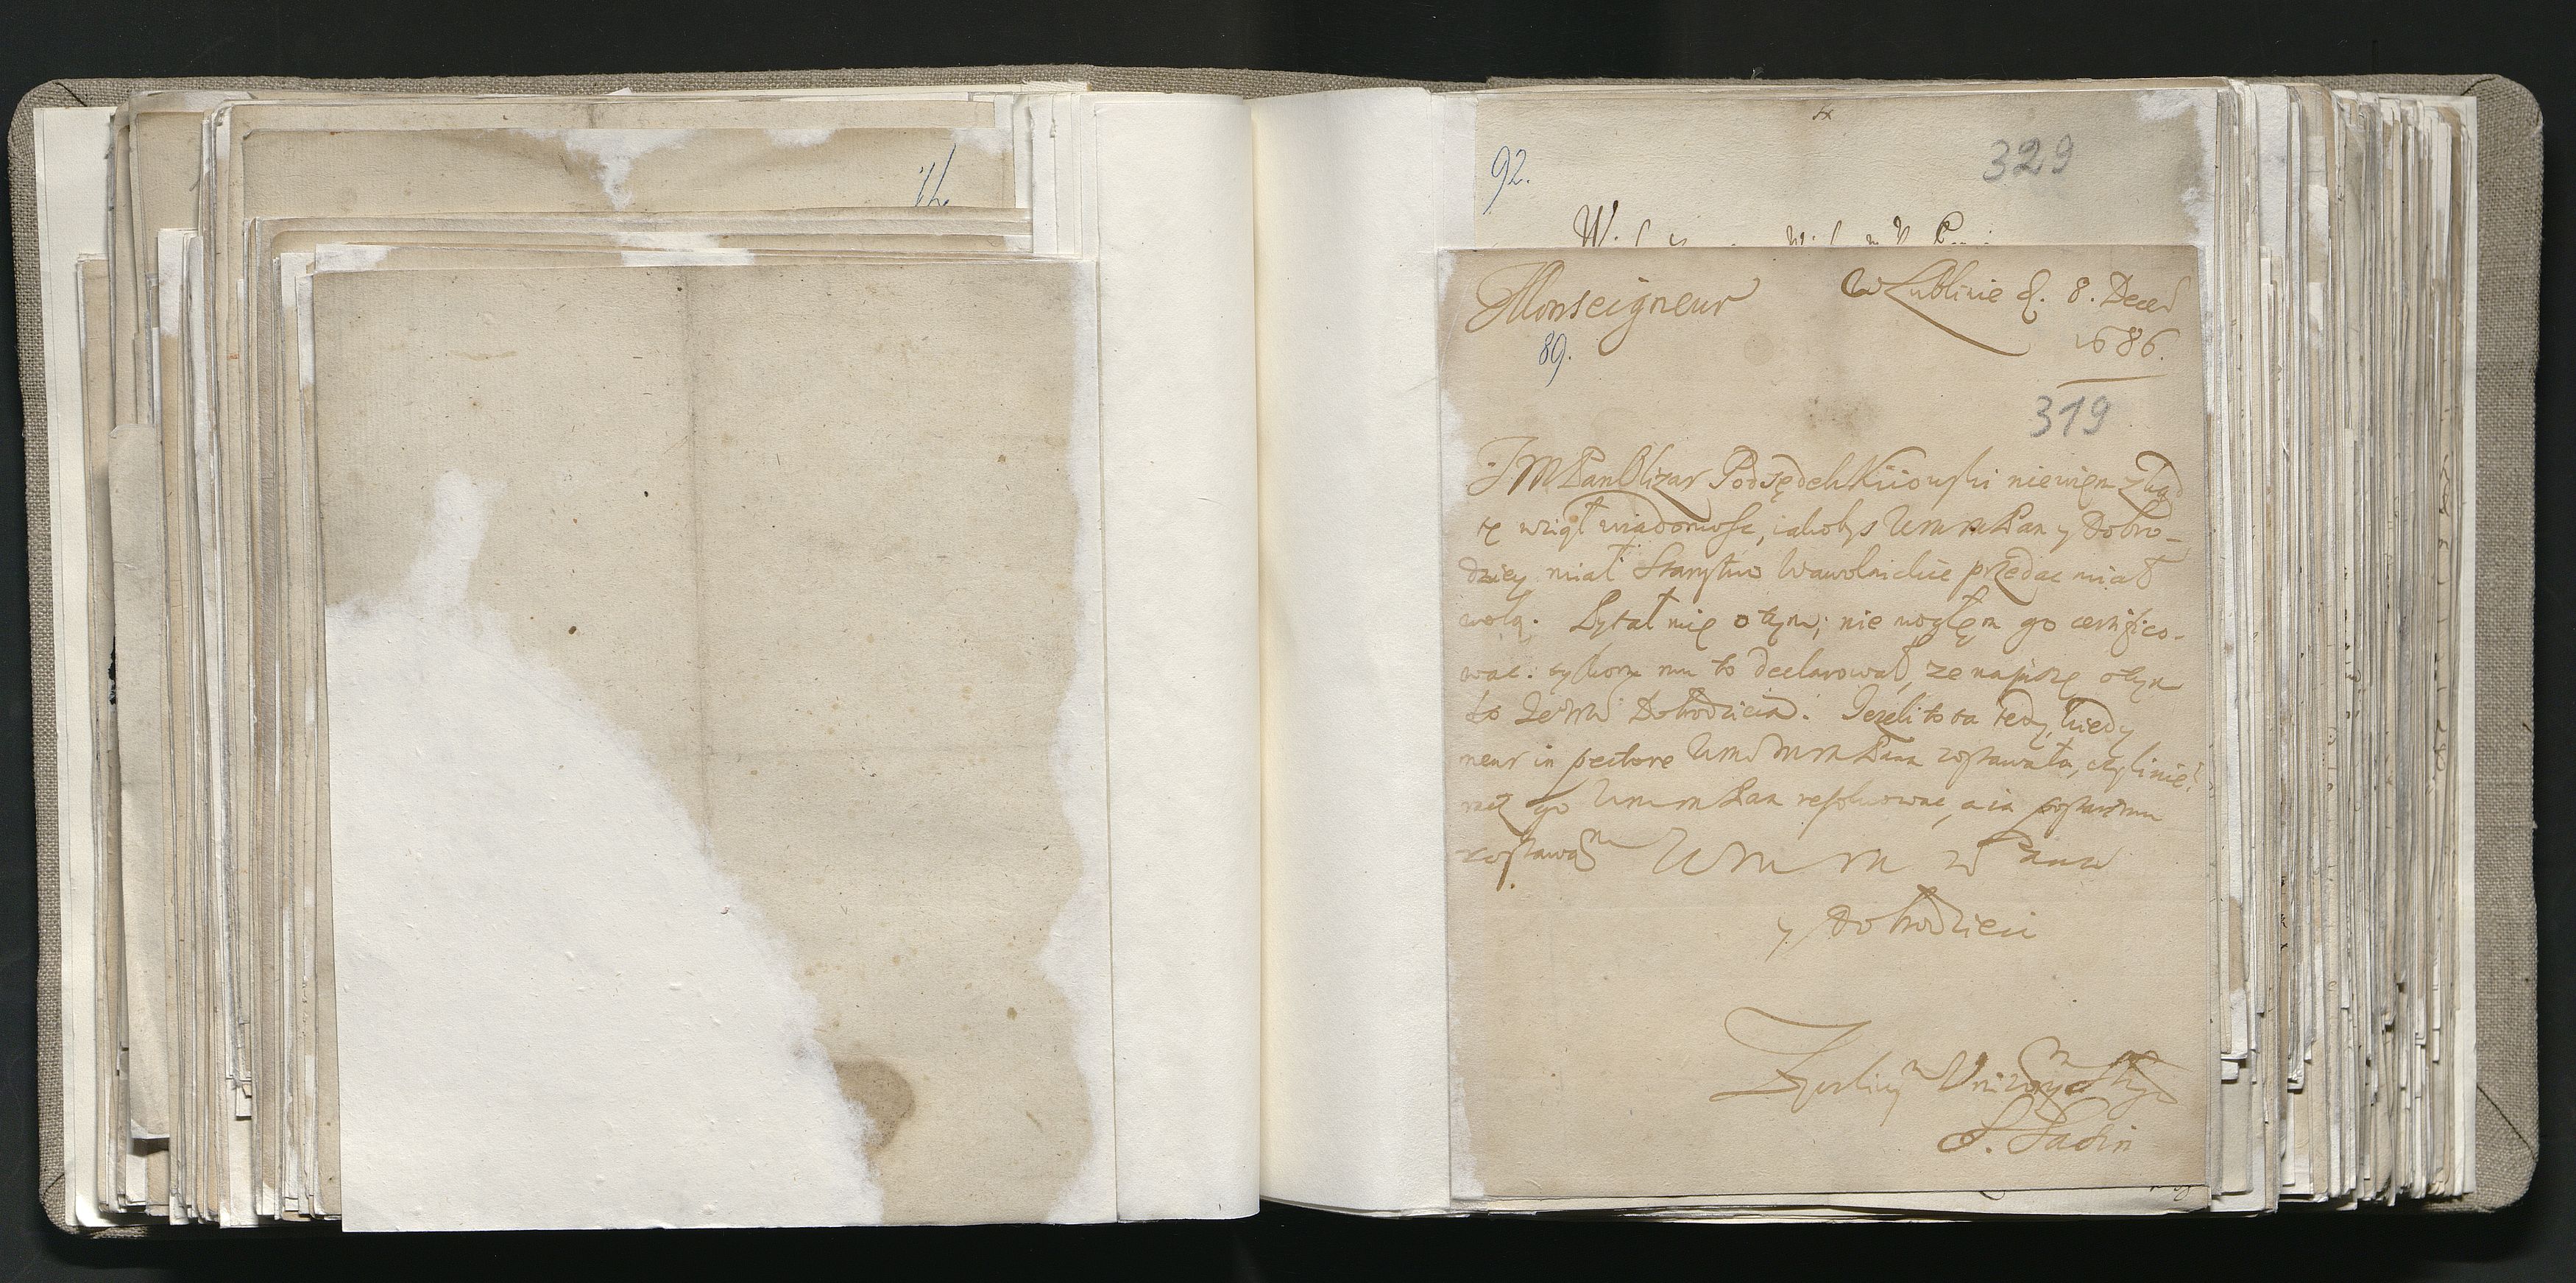 92.
329
Monseigneur
w Lublinie d. 8. Decem
1686.
89.
319
JM Pan Olizar Podsędek Kiiowski niewiem zkąd
tę wziął wiadomosc, iakobys Wm m Pan y Dobro-
dziey miał Starostwo Wawolnickie przedac miał
wolą. Pytał mię o tym; nie mogłęm go certifico-
wac: mu to declarował, ze napiszę o tym
do Dobrodzieia. Jezeli to ta tedy, kiedy
in pectore Wm m m Pana zostawała, czyli nie?
racz go Wm m Pan resolwowac, a ia
zostawam Wm m m Pana
y Dobrodzieia
Zyczliwym Unizonym Sługą